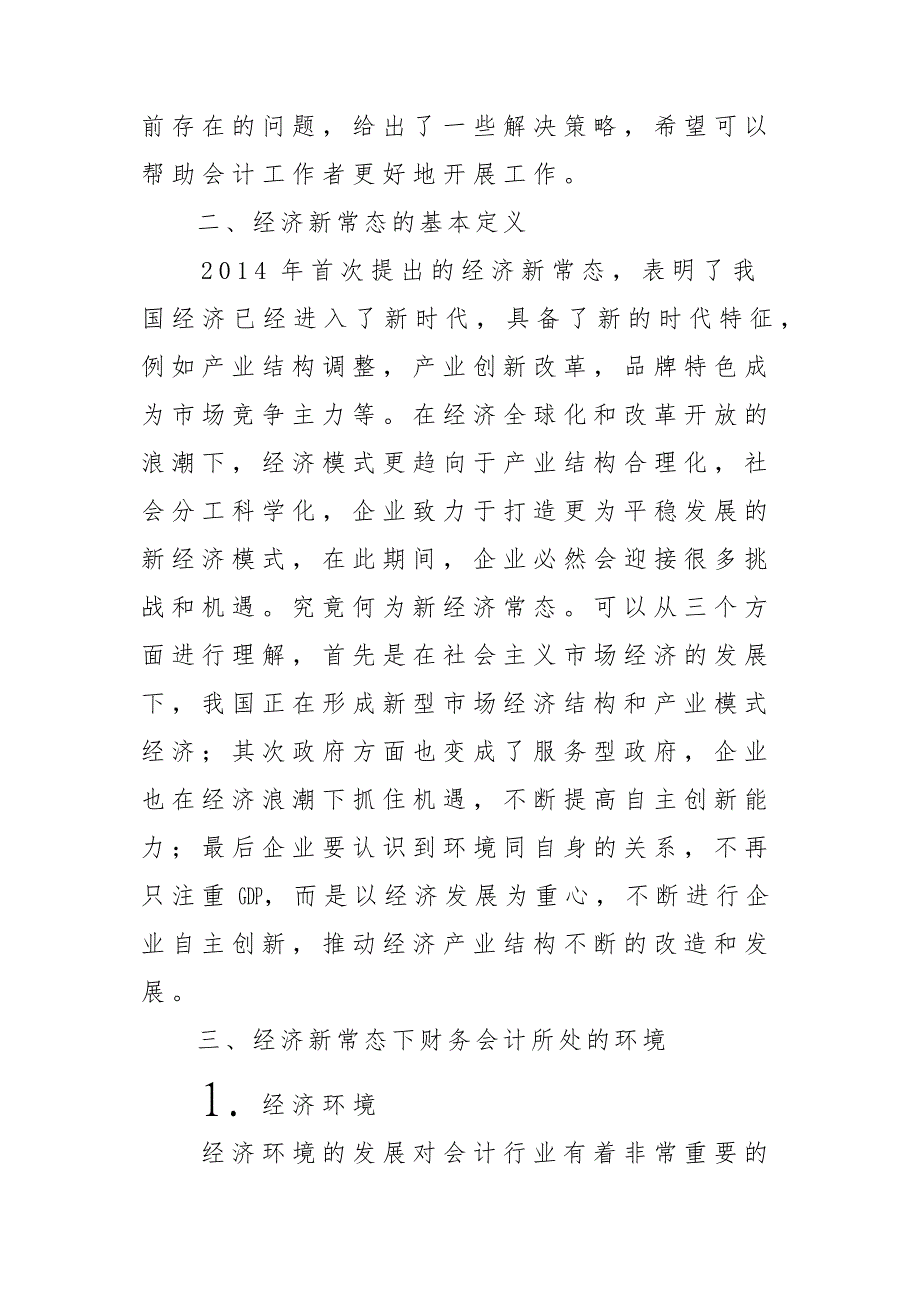 前存在的问题，给出了一些解决策略，希望可以
帮助会计工作者更好地开展工作。
二、经济新常态的基本定义
2014年首次提出的经济新常态，表明了我
国经济已经进入了新时代，具备了新的时代特征，
例如产业结构调整，产业创新改革，品牌特色成
为市场竞争主力等。在经济全球化和改革开放的
浪潮下，经济模式更趋向于产业结构合理化，社
会分工科学化，企业致力于打造更为平稳发展的
新经济模式，在此期间，企业必然会迎接很多挑
战和机遇。究竟何为新经济常态。可以从三个方
面进行理解，首先是在社会主义市场经济的发展
下，我国正在形成新型市场经济结构和产业模式
经济；其次政府方面也变成了服务型政府，企业
也在经济浪潮下抓住机遇，不断提高自主创新能
力；最后企业要认识到环境同自身的关系，不再
只注重GDP，而是以经济发展为重心，不断进行企
业自主创新，推动经济产业结构不断的改造和发
展。
三、经济新常态下财务会计所处的环境
1.经济环境
经济环境的发展对会计行业有着非常重要的